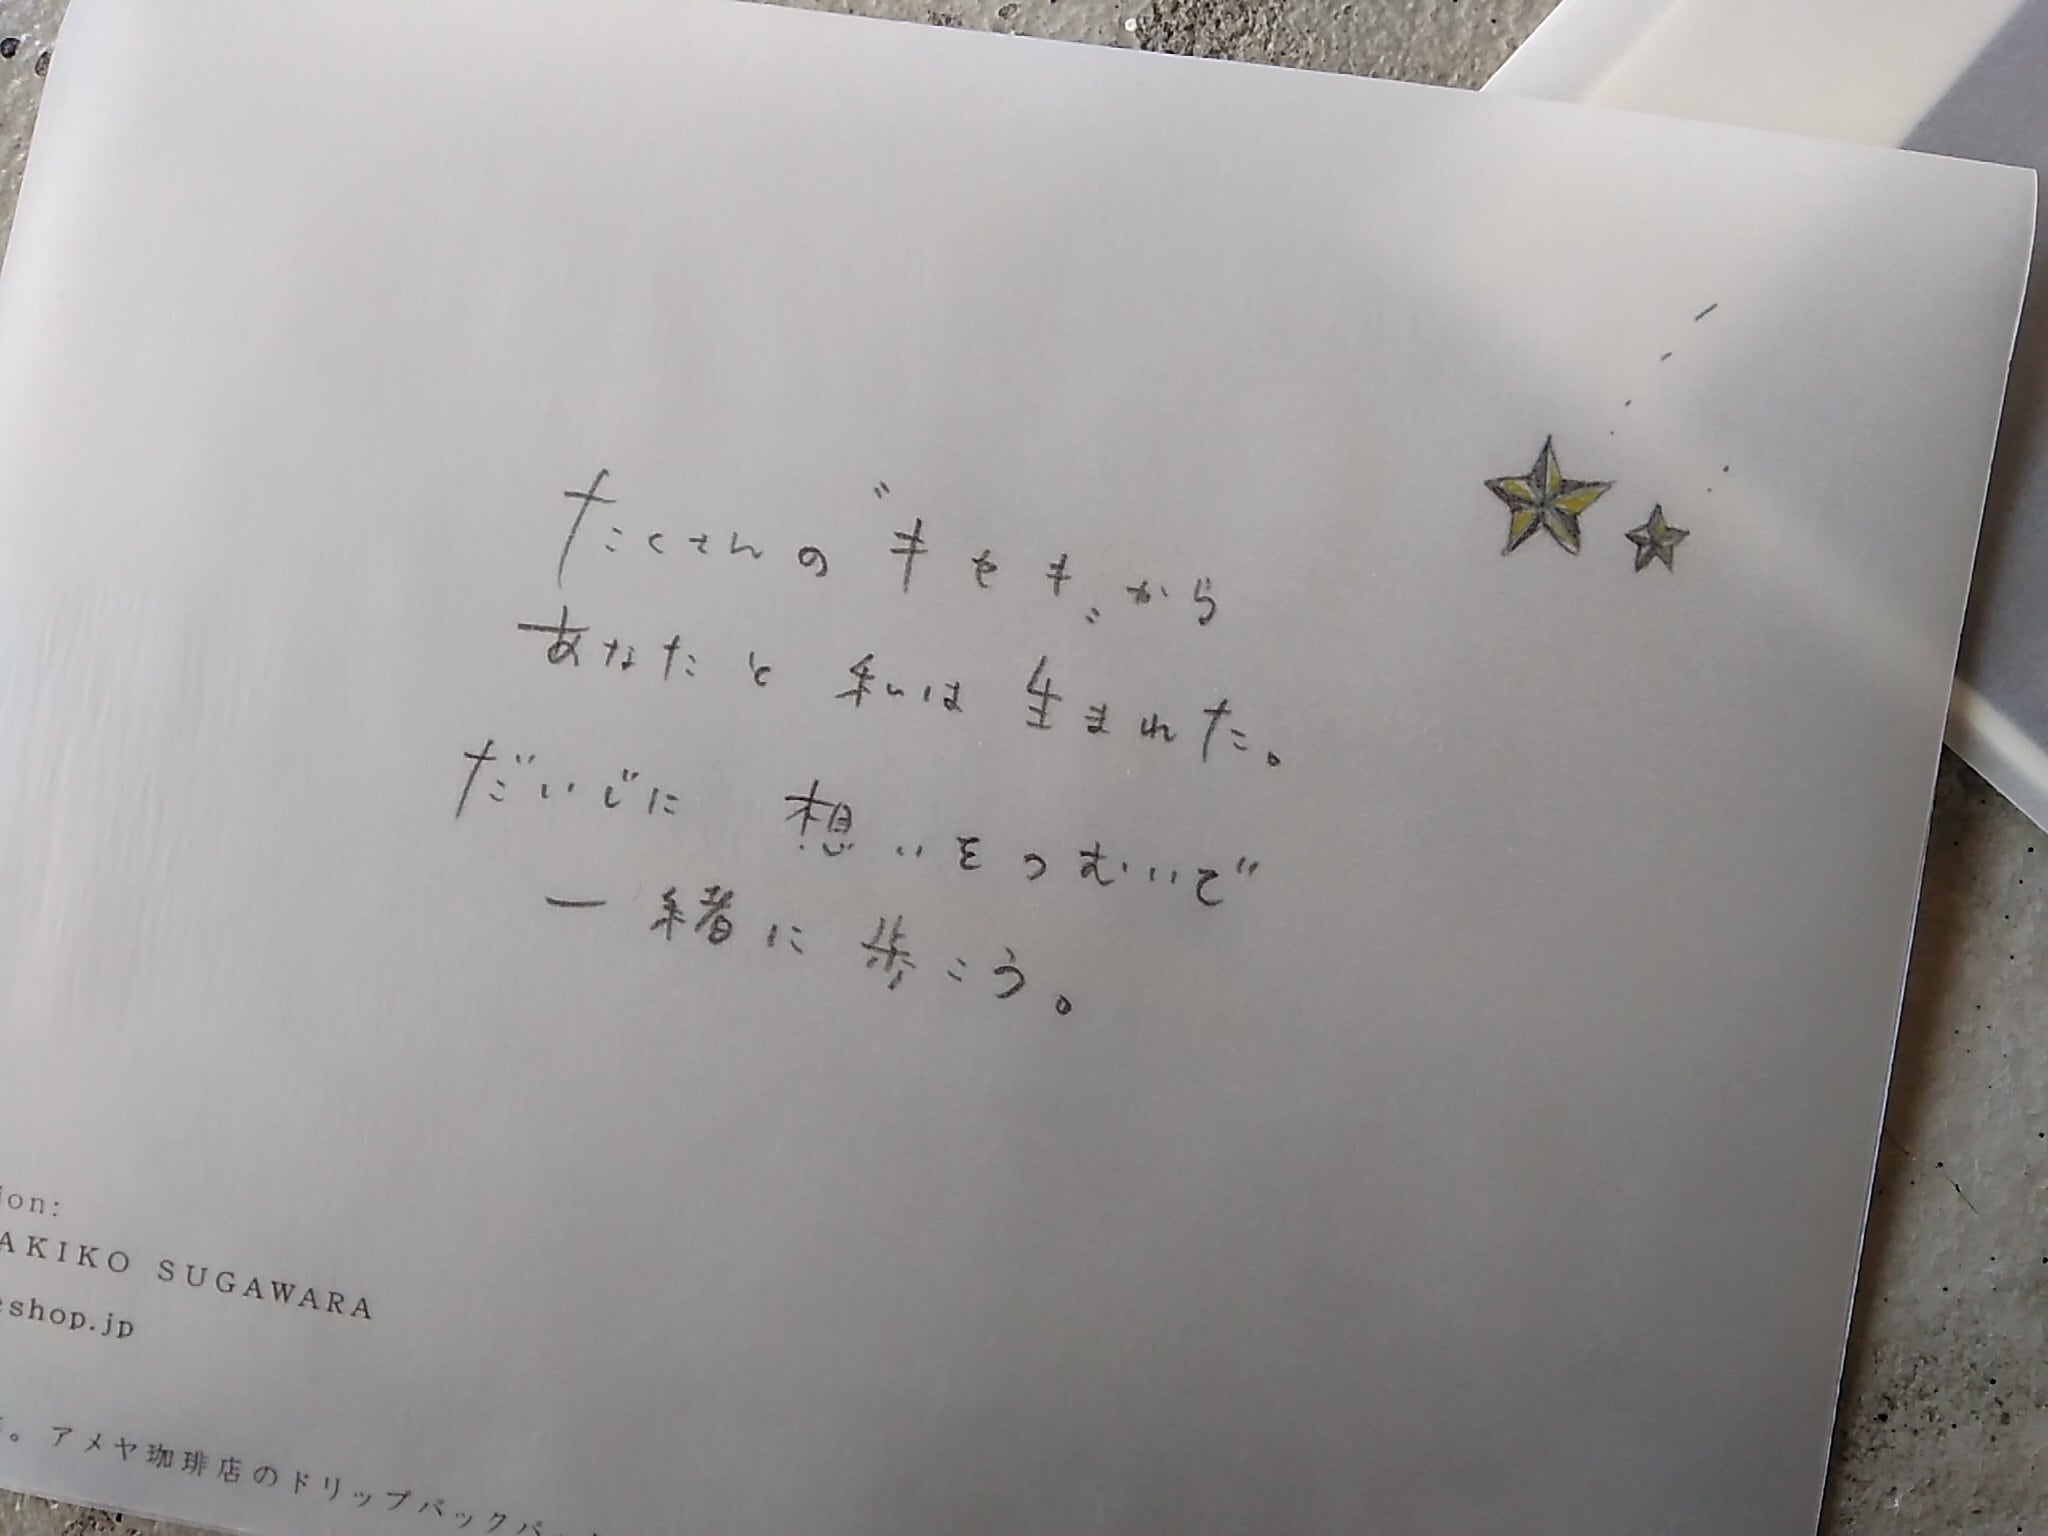 たくさんの〝キセキ〟から
あなたと私は生まれた。
だいじに 想いをつむいで
一緒に歩こう。
ion:
AKIKO SUGAWARA
eshop.jp
。アメヤ珈琲店のドリップバックパッ